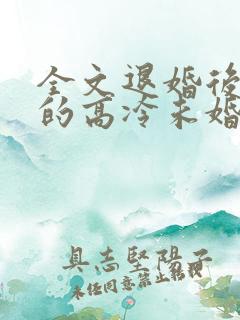 全文退婚後
的高冷未婚
具志堅陽子
同意禁止